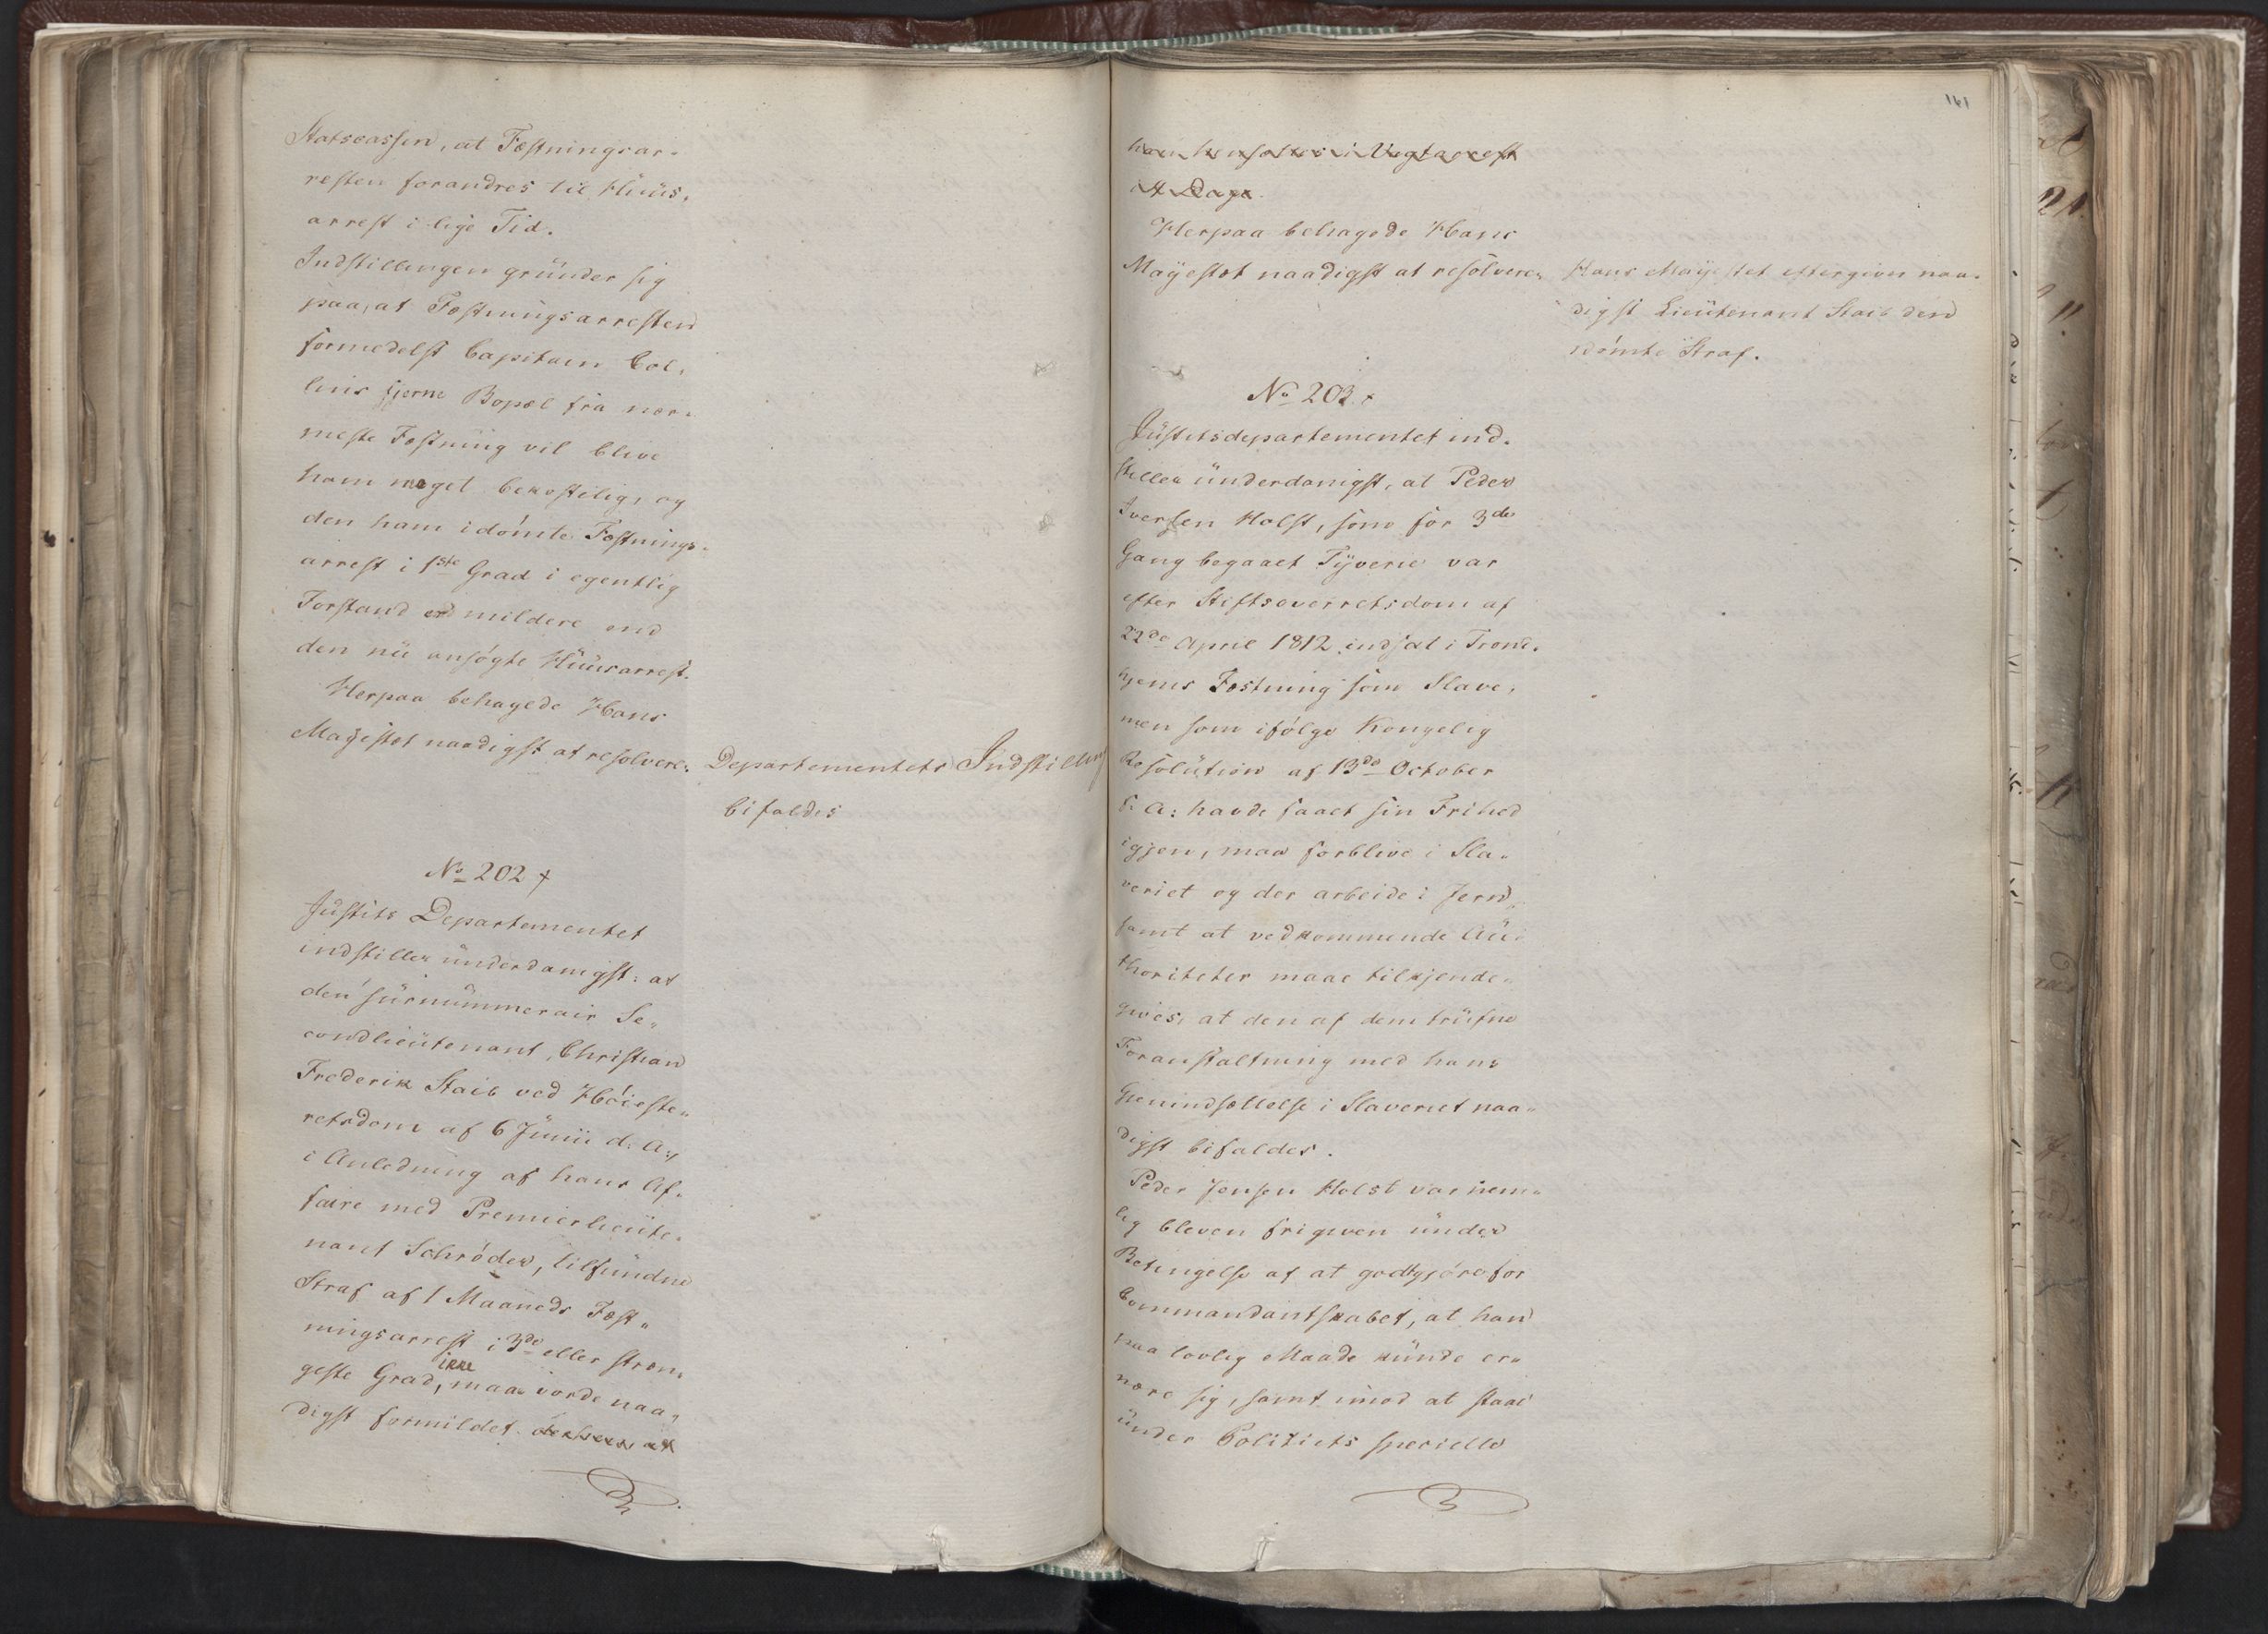 Statscassen, at Fæstningsar-
resten forandres til Huus-
arrest i lige Tid.
Indstillingen grunder sig
paa, at Fæstningsarresten
formedelst Capitain Col-
lins fjerne Bopæl fra nær-
meste Fæstning vil blive
ham meget bekostelig, og
den ham idömte Fæstnings-
arrest i 1ste Grad i egentlig
Forstand er mildere end
den nu ansögte Huusarrest.
Herpaa behagede Hans
Majestæt naadigst at resolvere:
Departementets Indstilling
bifaldes
No 202 +
Justits Departementet
indstiller underdanigst: at
den surnummerair Se-
condlieutenant, Christian
Frederik Staib ved Höieste-
retsdom af 6 Junii d. A.,
i Anledning af hans Af-
faire med Premierlieute-
nant Schröder, tilfundne
Straf af 1 Maaneds Fæst-
ningsarrest i 3de eller stræn-
geste Grad, maa ikke vorde naa-
digst formildet derhen at
161
han hensættes i Vagtarrest
i 4 Dage.
Herpaa behagede Hans
Majestæt naadigst at resolvere:
Hans Majestet eftergiver naa-
digst Lieutenant Staib den
idömte Straf.
No 203. +
Justitsdepartementet ind-
stiller underdanigst, at Peder
Iversen Holst, som for 3de
Gang begaaet Tyverie var
efter Stiftsoverretsdom af
22de April 1812 indsat i Trond-
hjems Fæstning som Slave,
men som ifölge Kongelig
Resolution af 13de October
f. A: havde faaet sin Frihed
igjen, maa forblive i Sla-
veriet og der arbeide i Jern,
samt at vedkommende Au-
thoriteter maae tilkjende-
gives, at den af dem trufne
Foranstaltning med hans
Gjenindsættelse i Slaveriet naa-
digst bifaldes.
Peder Jensen Holst var nem-
lig bleven frigiven under
Betingelse af at godtgjöre for
Commandantskabet, at han
paa lovlig Maade kunde er-
nære sig, samt imod at staae
under Politiets specielle